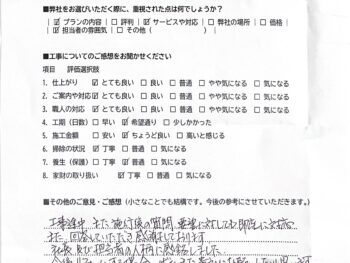 ■弊社をお選びいただく際に、重視された点は何でしょうか？
☑プランの内容 □評判 ☑サービスや対応 □弊社の場所 □価格
☑担当者の雰囲気 □その他（　　　　　）
■工事についてのご感想をお聞かせください
項目 評価選択肢
1. 仕上がり ☑とても良い □良い □普通 □やや気になる □気になる
2. ご案内や対応 ☑とても良い □良い □普通 □やや気になる □気になる
3. 職人の対応 ☑とても良い □良い □普通 □やや気になる □気になる
4. 工期（日数） □早い ☑希望通り □少しかかった
5. 施工金額 □安い ☑ちょうど良い □高いと感じる
6. 掃除の状況 ☑丁寧 □普通 □気になる
7. 養生（保護） ☑丁寧 □普通 □気になる
8. 家財の取り扱い ☑丁寧 □普通 □気になる
■その他のご意見・ご感想（小さなことでも結構です。今後の参考にさせていただきます。）
工事途中、また施行後の質問、要望に対しても即座に対応
また、回答していただき感謝しております
社長及び担当者の人柄に感銘しました